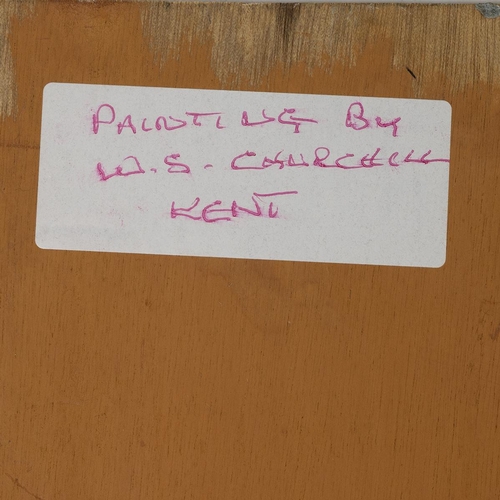 PAINTING BY
W.S. CHURCHILL
KENT